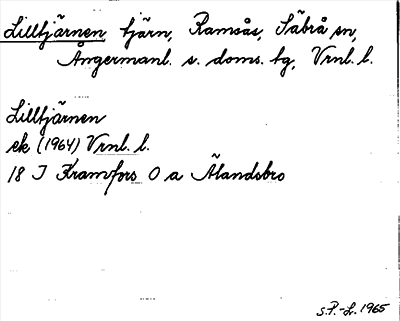 Lilltjärnen tjärn, Ramsås, Säbrå sn,
Ångermanl. s. doms. tg, Vrnl. l.
Lilltjärnen
ek (1964) Vrnl. l.
18 I Kramfors O a Älandsbro
S.P.-L. 1965